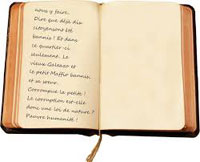 nous y faire.
Dire que déjà dix
citoyensont été
bannis ! Et dans
ce quartier-ci
seulement. Le
vieux Galassio et
le petit Maffio bannis,
et sa sœur.
Corrompue la petite !
La corruption est-elle
donc une loi de nature ?
Pauvre humanité !